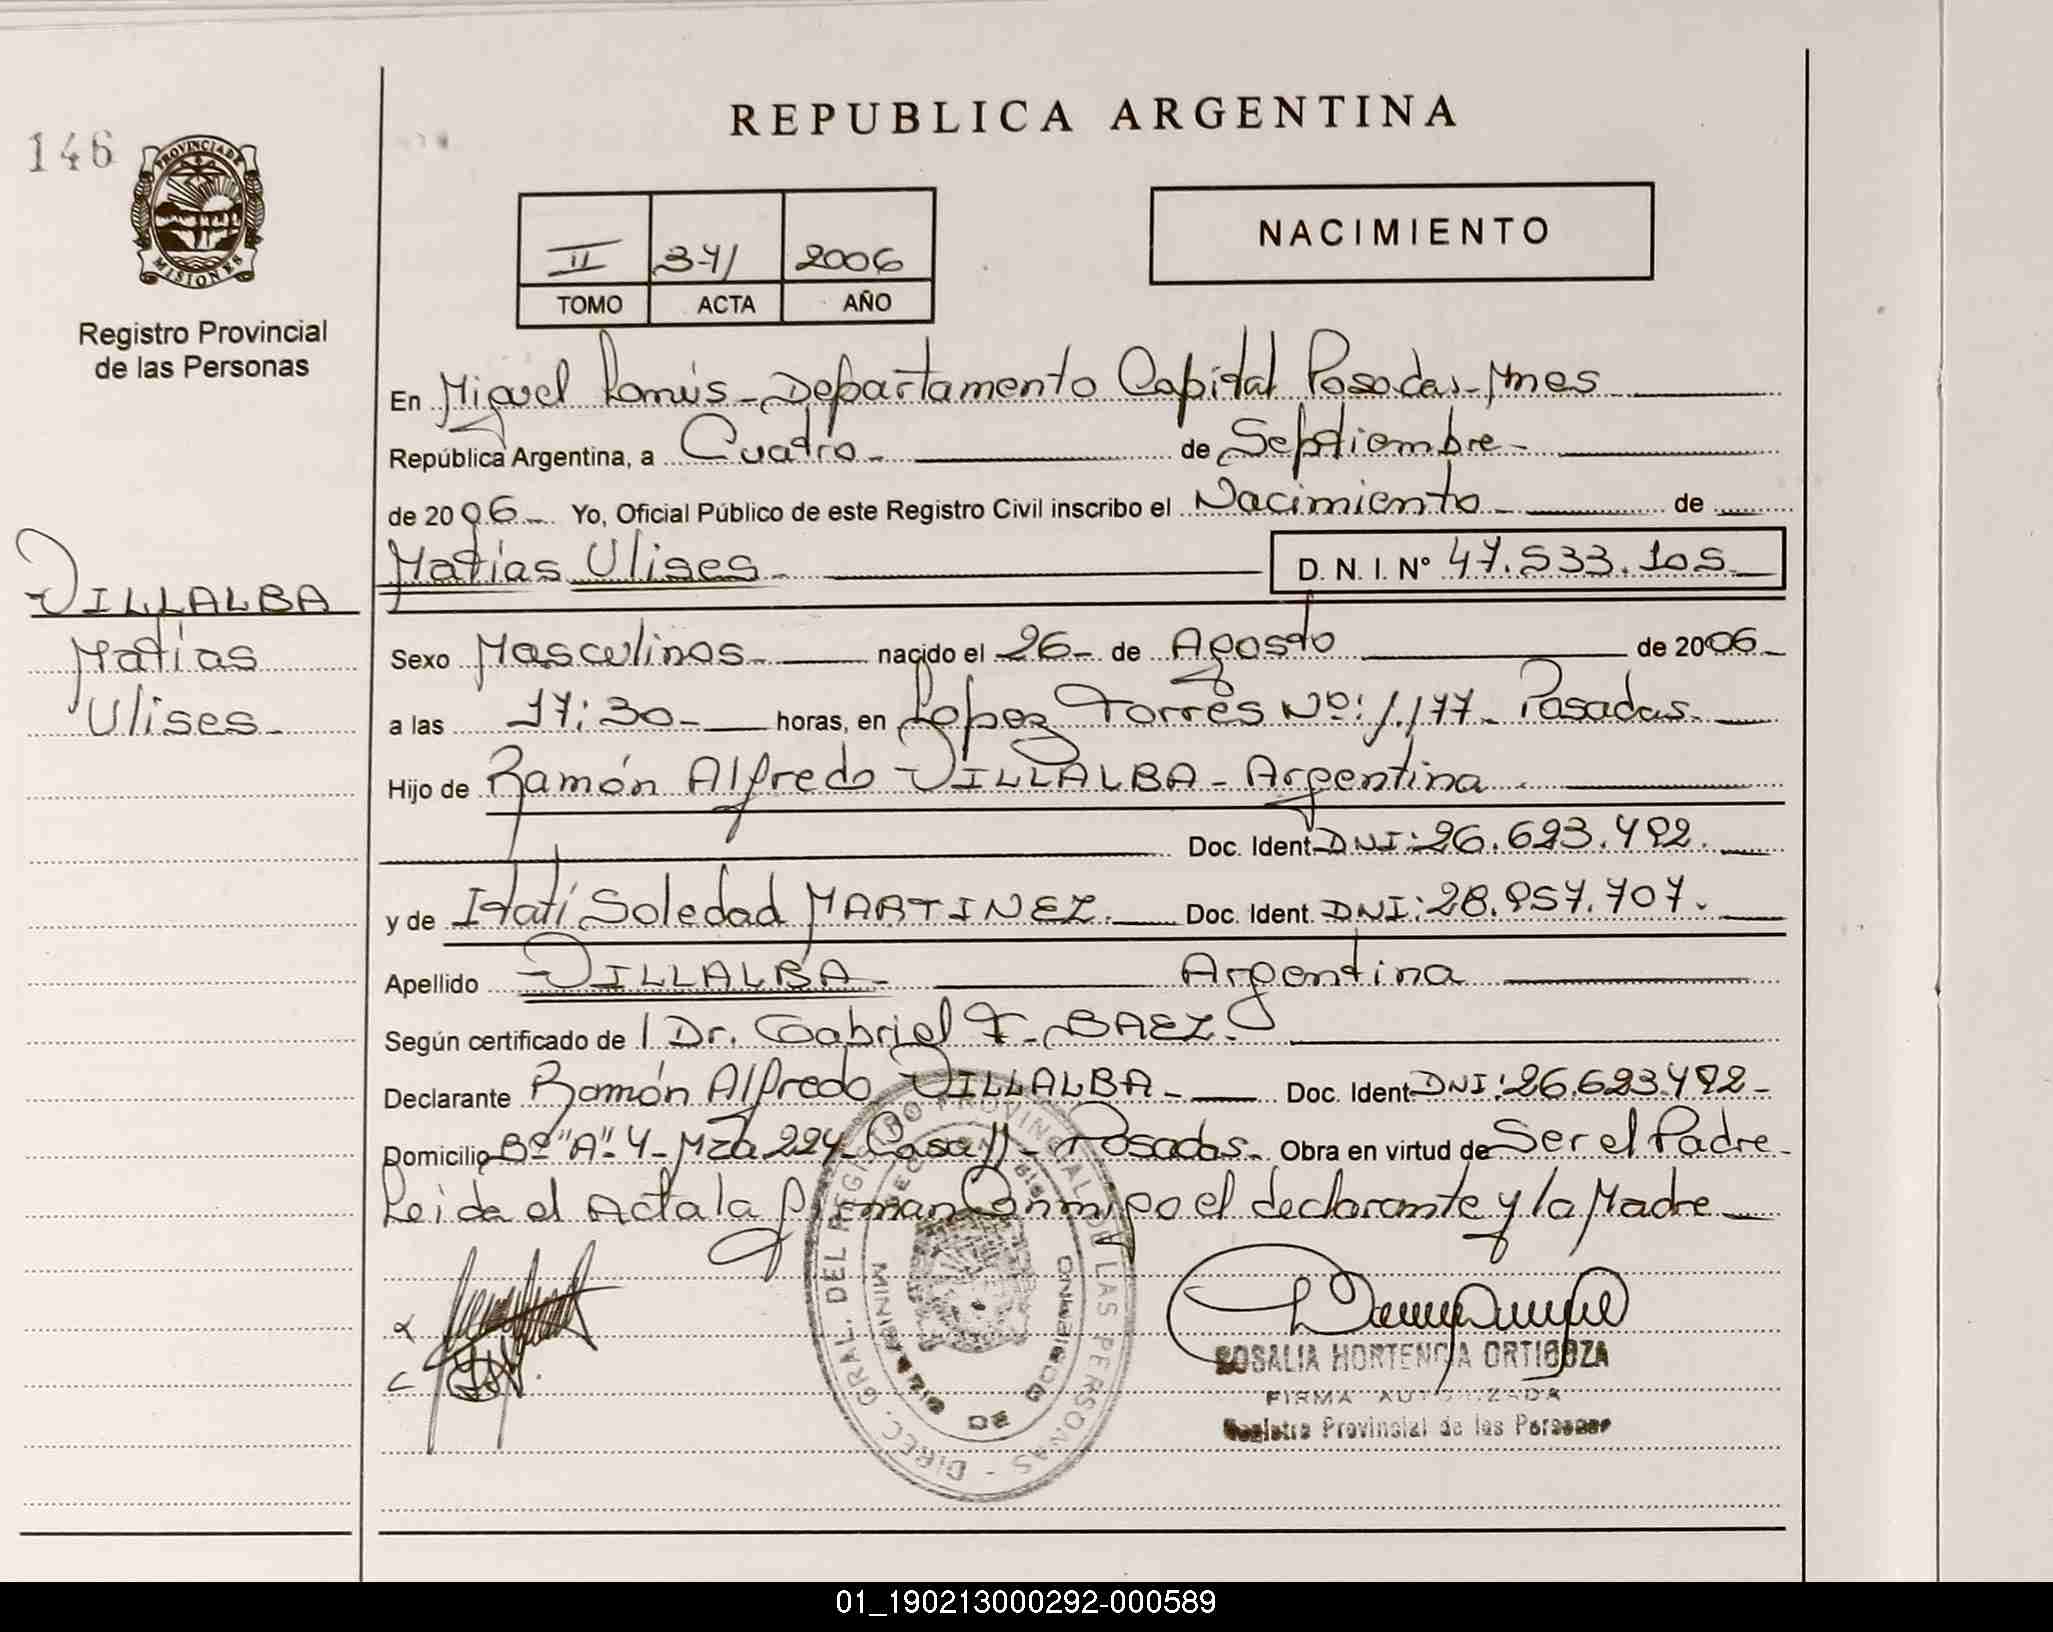 REPUBLICA ARGENTINA
146
PROVINCIA DE
MISIONES
Registro Provincial
de las Personas
NACIMIENTO
II 341 2006
TOMO ACTA AÑO
En Miguel Lanús - Departamento Capital Posadas - Mnes
República Argentina, a Cuatro - de Septiembre -
de 2006 - Yo, Oficial Público de este Registro Civil inscribo el Nacimiento - de
Matías Ulises - D. N. I. Nº 47.533.105
VILLALBA
Matías
Ulises -
Sexo Masculinos - nacido el 26 - de Agosto de 2006 -
a las 17:30 - horas, en Lopez Torres Nº: 1.177 - Posadas -
Hijo de Ramón Alfredo VILLALBA - Argentina
Doc. Ident. DNI: 26.623.492.
y de Itatí Soledad MARTINEZ. Doc. Ident. DNI: 28.957.707.
Apellido VILLALBA - Argentina
Según certificado de / Dr. Gabriel F. BAEZ -
Declarante Ramón Alfredo VILLALBA - Doc. Ident. DNI: 26.623.492 -
Domicilio Bº "A" - 4 - Mza 224 - Casa 11 - Posadas - Obra en virtud de Ser el Padre -
Leida el Acta la firman Conmigo el declarante y la Madre
DIREC. GRAL. DEL REGISTRO PROVINCIAL DE LAS PERSONAS
ROSALIA HORTENCIA ORTIGOZA
FIRMA AUTORIZADA
Registro Provincial de las Personas
01_190213000292-000589